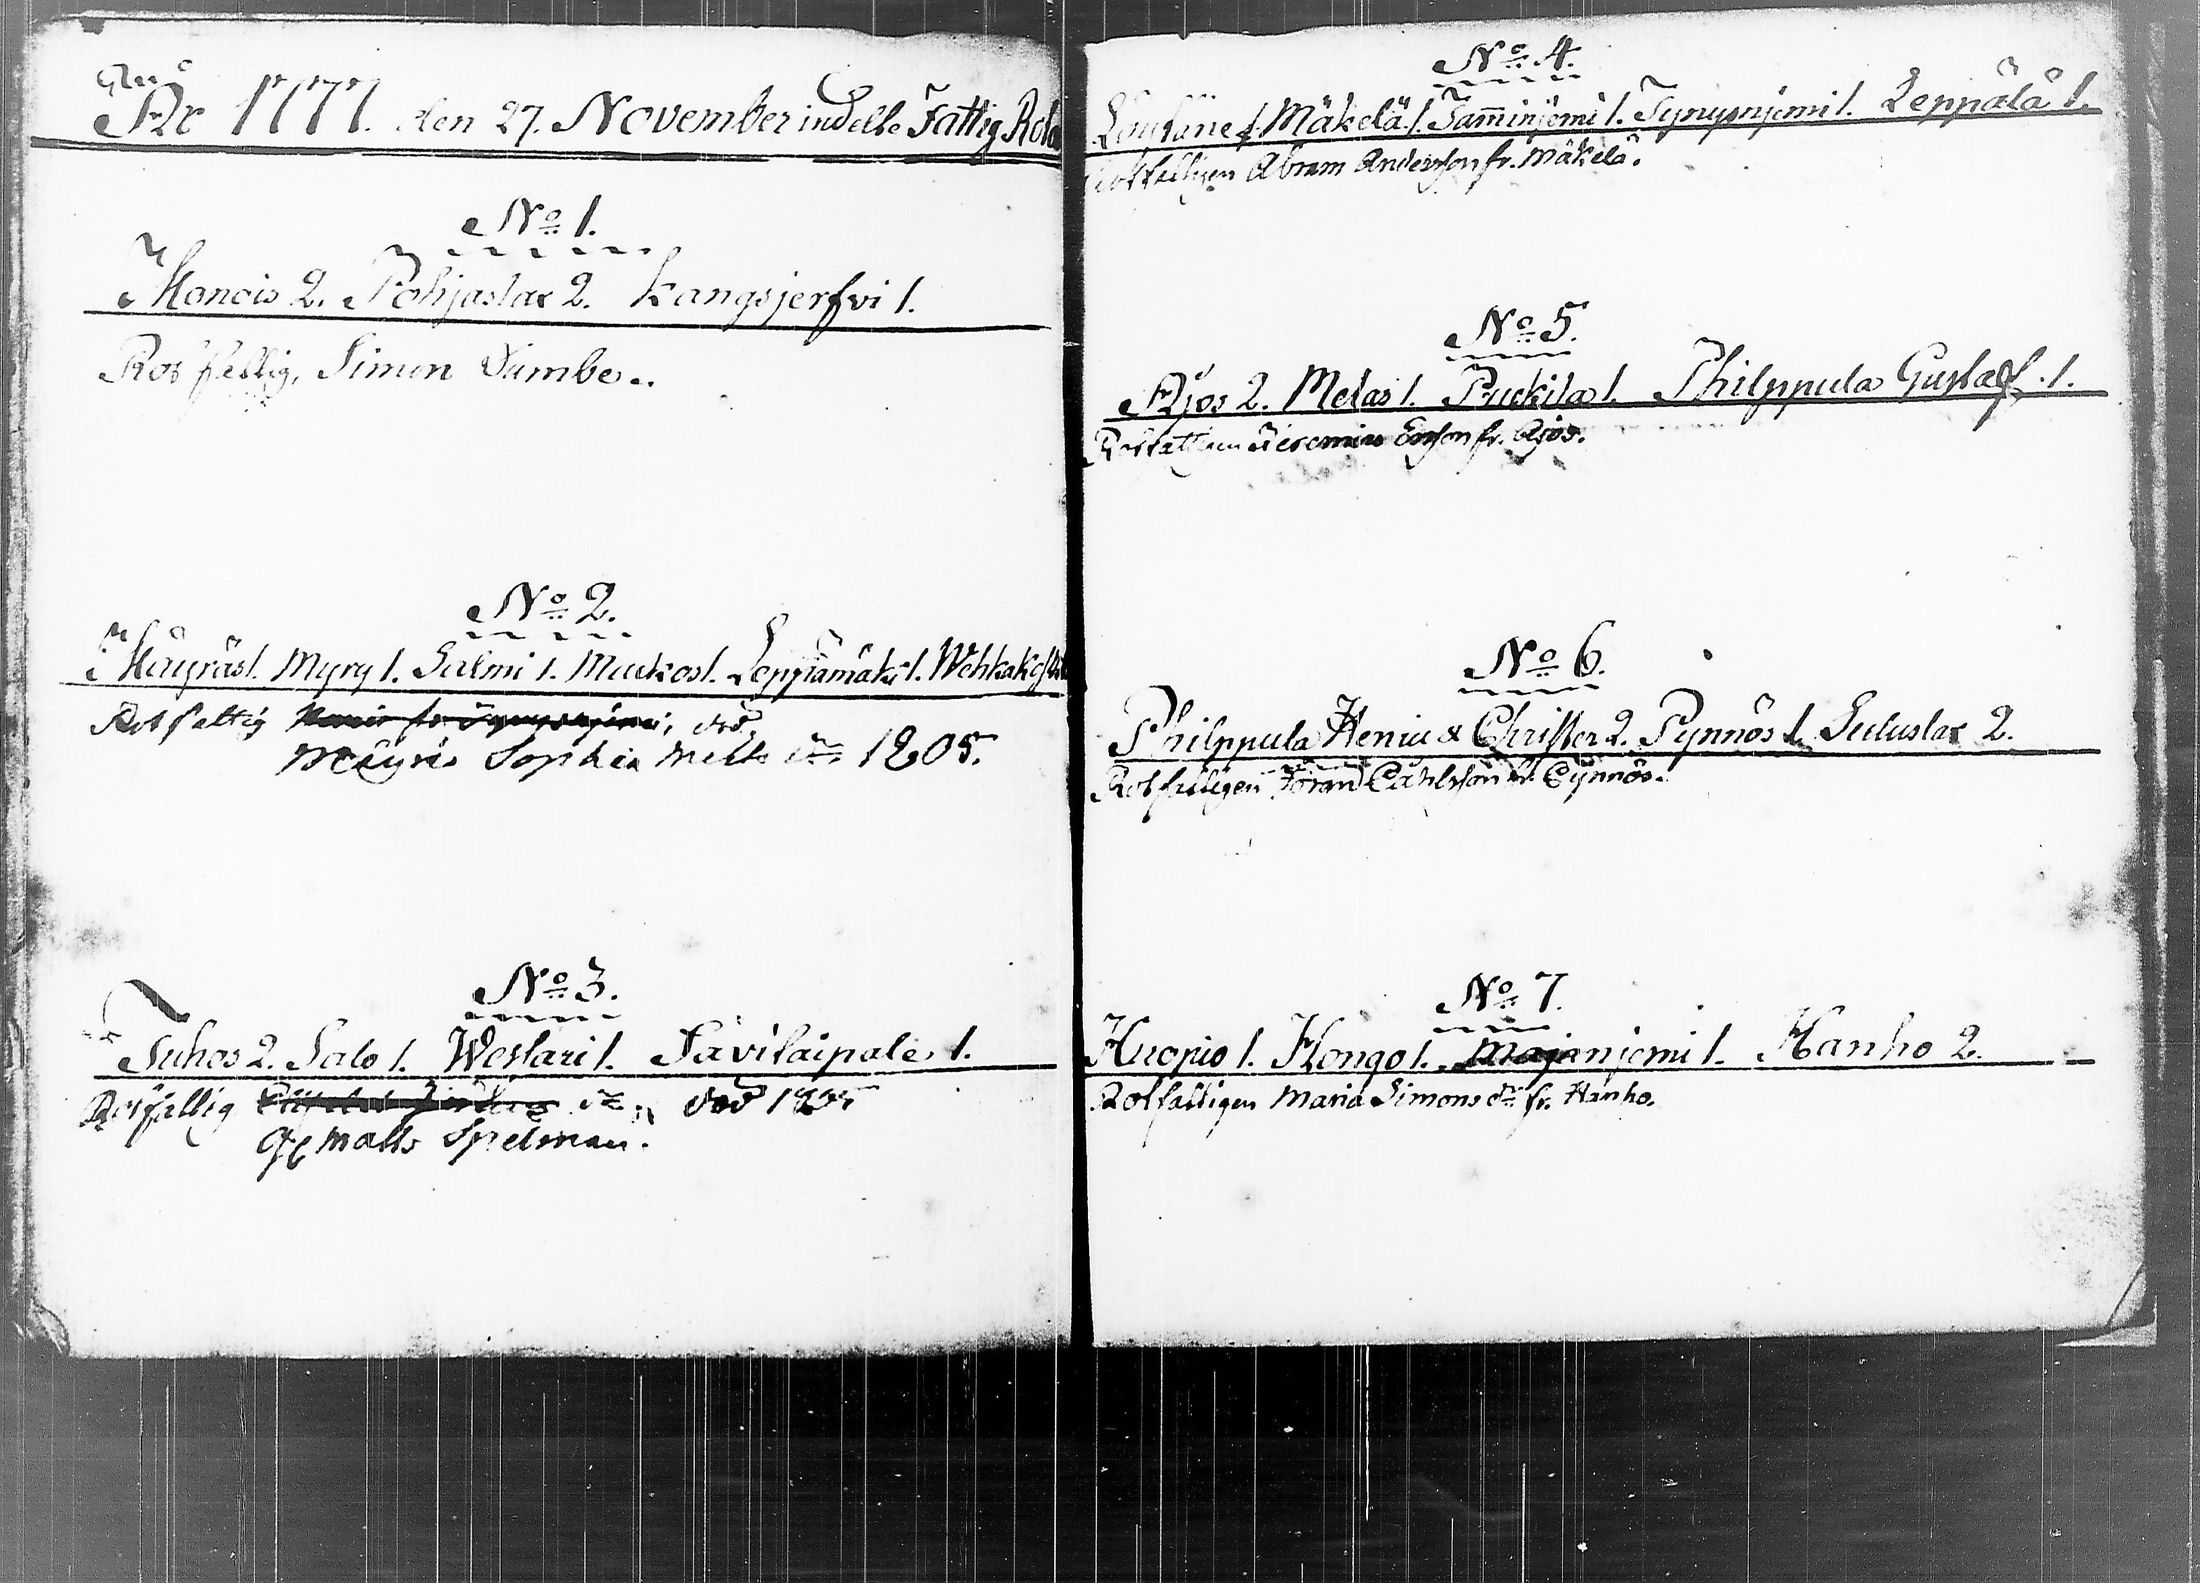 År 1777. den 27. November indelte Fattig Rote
No 1.
Monois 2. Pohjastar 2. Kangsjerfvi 1.
Rot fattig, Simon Sumbe..
No 2.
Mäyräs 1. Myry 1. Salmi 1. Muckos 1. Leppiämäki 1. Wehkakos
Rotfattig död
Mäyrä Sophia Matts dr 1805.
No 3.
Tuhos 2. Salo 1. Westari 1. Savitaipale 1.
Rotfattig död 1805
Matts Spelman.
No 4.
Mäkelä 1. Tam̅injemi 1. Tynynjemi 1. Leppälä 1.
Rotfattigen Abram Andersson fr. Mäkelä.
No 5.
Ajos 2. Metas 1. Puckila 1. Philppula Gustaf. 1.
Rotfattigen Jeremias Ersson fr. Ajos.
No 6.
Philppula Henric & Christer 2. Pynnös 1. Sulustar 2.
Rotfattigen Jöran Carlsson fr. Pynnös.
No 7.
Kuopio 1. Kongo 1. Majanjemi 1. Hanho 2.
Rotfattigen Maria Simons dr fr. Hanho.